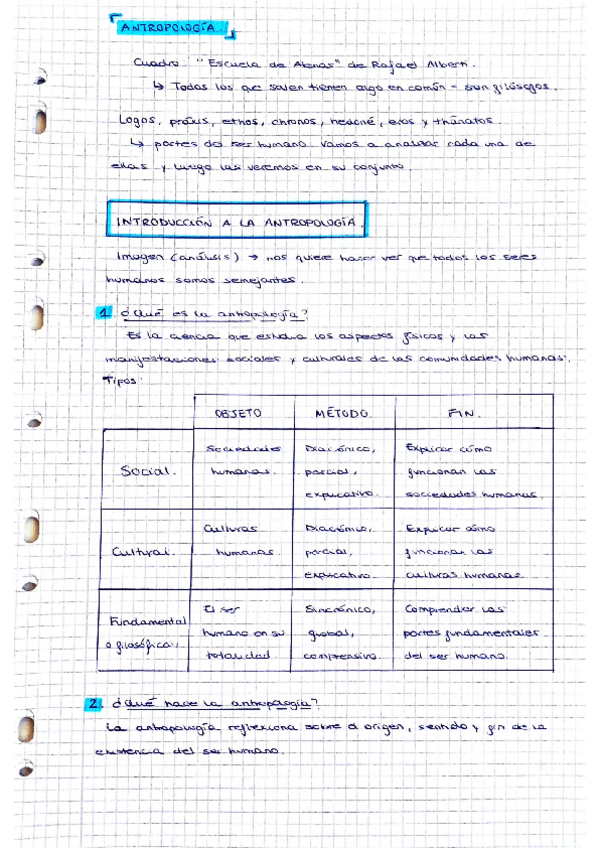 ANTROPOLOGÍA.
Cuadro: "Escuela de Atenas" de Rafael Alberti.
↳ Todos los que salen tienen algo en común - son filósofos.
Logos, praxis, ethos, chronos, hedoné, eros y thánatos
↳ partes del ser humano. Vamos a analizar cada una de
ellas y luego las veremos en su conjunto.
INTRODUCCIÓN A LA ANTROPOLOGÍA.
Imagen (análisis) → nos quiere hacer ver que todos los seres
humanos somos semejantes.
1. ¿Qué es la antropología?
Es la ciencia que estudia los aspectos físicos y las
manifestaciones sociales y culturales de las comunidades humanas.
Tipos:
OBJETO MÉTODO. FIN.
Social. Sociedades humanas. Diacrónico, parcial, explicativo. Explicar cómo funcionan las sociedades humanas.
Cultural. Culturas humanas Diacrónico, parcial, explicativo. Explicar cómo funcionan las culturas humanas.
Fundamental o filosófica. El ser humano en su totalidad Sincrónico, global, comprensivo. Comprender las partes fundamentales del ser humano.
2. ¿Qué hace la antropología?
La antropología reflexiona sobre el origen, sentido y fin de la
existencia del ser humano.